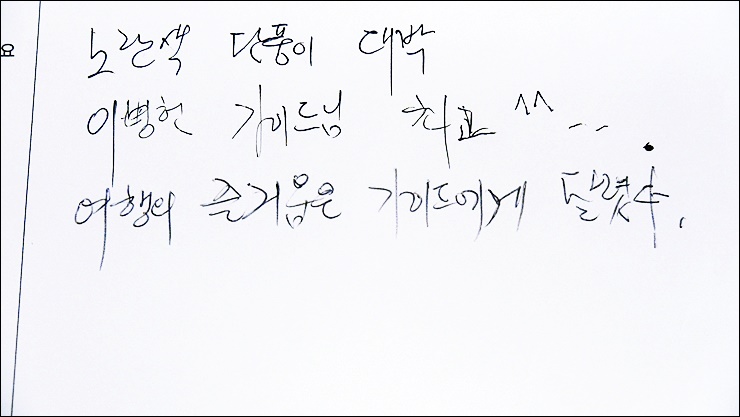 노란색 단풍이 대박
이병헌 가이드님 최고 ^^ ...
여행의 즐거움은 가이드에게 달렸다.
요